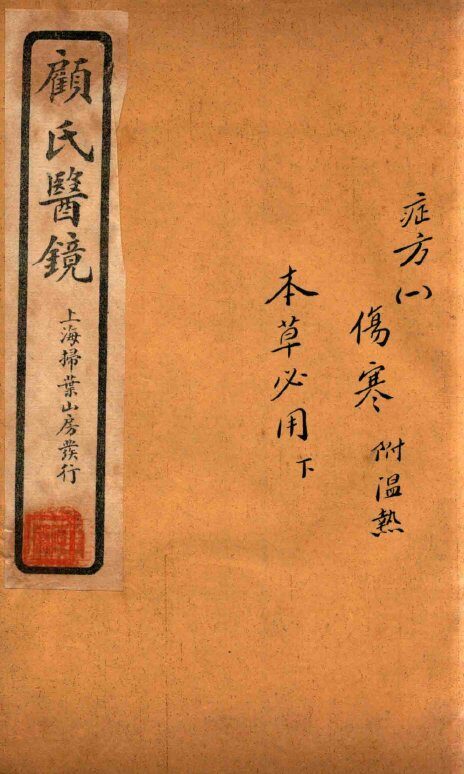 顧氏醫鏡
上海掃葉山房發行
症方(一)
傷寒 附温熱
本草必用 下